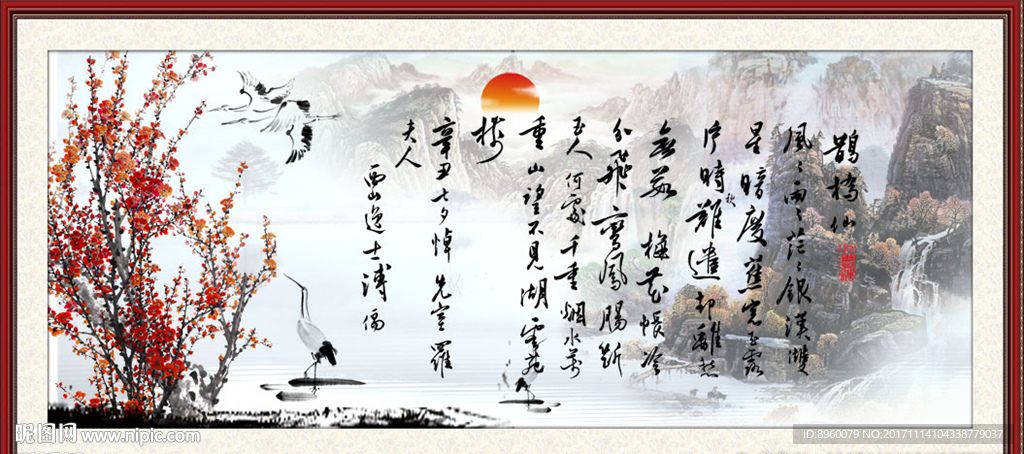 鵲橋仙
風〻雨〻茫〻銀漢雙
星暗度玉露
片時秋難遣却離愁
梅花帳冷
分飛鸞鳳腸斷
玉人何處千重烟水萬
重山望不見湖雲苑
樹
辛丑七夕悼先室羅
夫人
西山逸士溥儒
昵图网 www.nipic.com
ID:8960079 NO:20171114104338779037